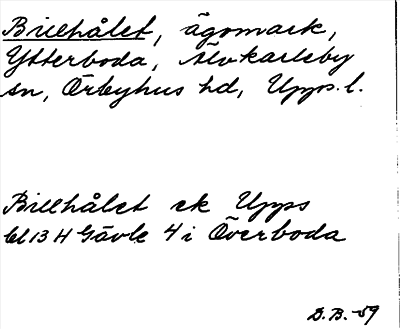 Billhålet, ägomark,
Ytterboda, Älvkarleby
sn, Örbyhus hd, Upps. l.
Billhålet ek Upps
bl 13 H Gävle 4 i Överboda
D.B. -59